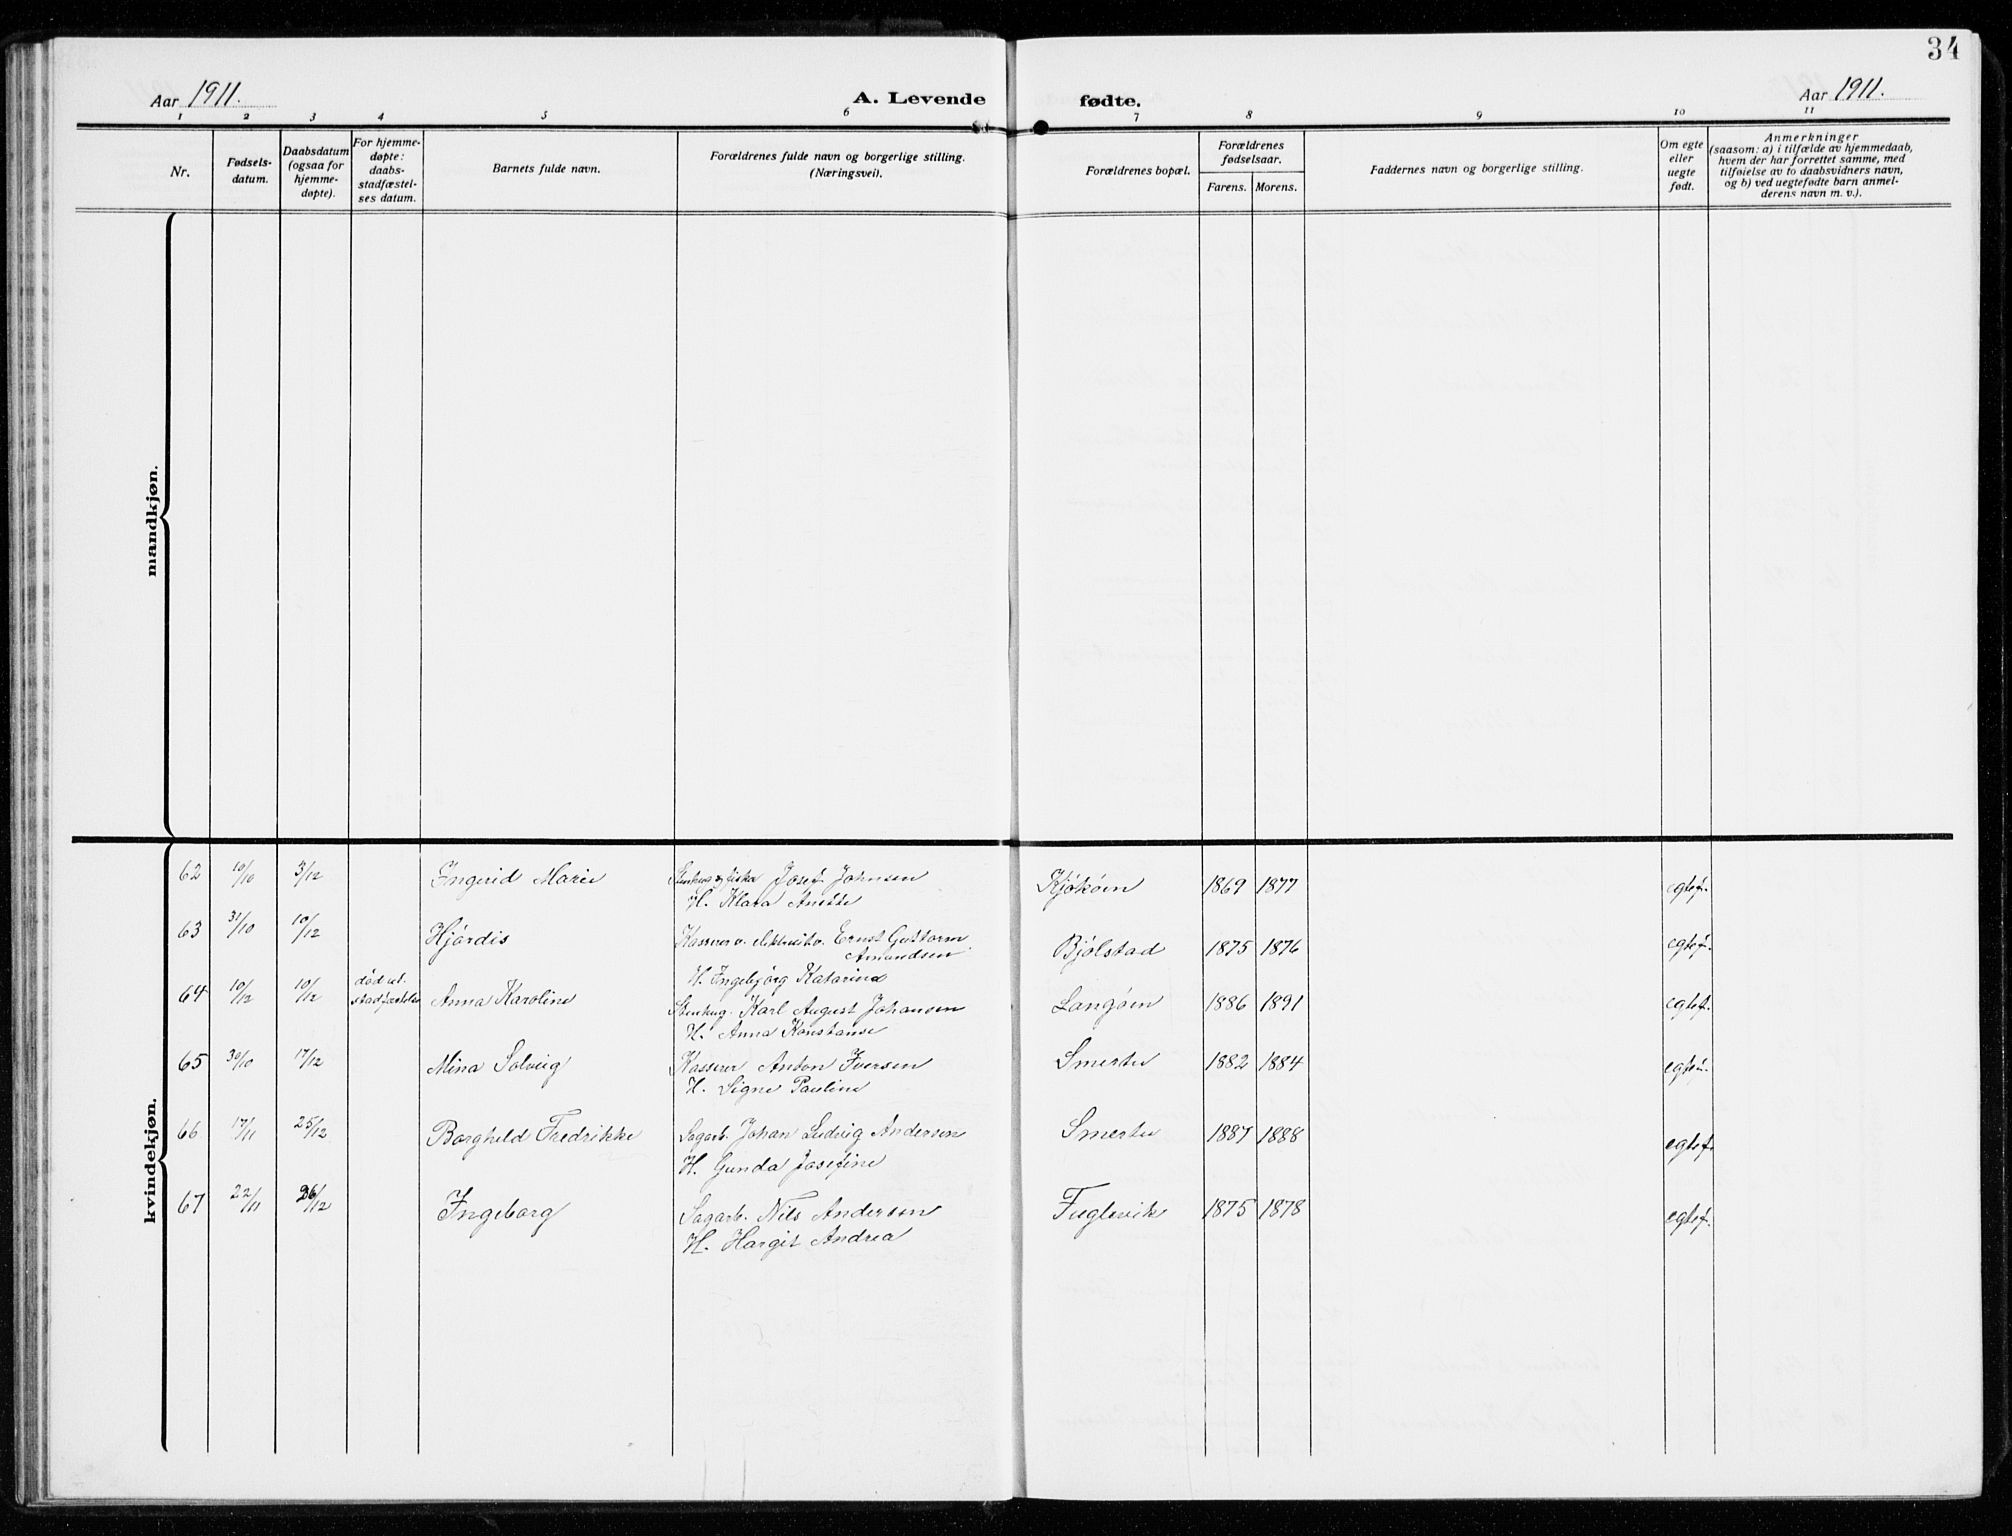 34
Aar 1911.
A. Levende fødte.
Aar 1911.
1 2 3 4 5 6 7 8 9 10 11
Nr.
Fødsels-
datum.
Daabsdatum
(ogsaa for
hjemme-
døpte).
For hjemme-
døpte:
daabs-
stadfæstel-
ses datum.
Barnets fulde navn.
Forældrenes fulde navn og borgerlige stilling.
(Næringsvei).
Forældrenes bopæl.
Forældrenes
fødselsaar.
Farens. Morens.
Faddernes navn og borgerlige stilling.
Om egte
eller
uegte
født.
Anmerkninger
(saasom: a) i tilfælde av hjemmedaab,
hvem der har forrettet samme, med
tilføielse av to daabsvidners navn,
og b) ved uegtefødte barn anmel-
derens navn m. v.).
mandkjøn.
kvindekjøn.
62 10/10 3/12 Ingerid Marie Stenhug. Josef Johnsen Kjøkøen 1869 1877 egtef.
H. Klara Anette
63 31/10 10/12 Hjørdis Kasserer Ernst Guttorm Bjølstad 1875 1876 egtef.
Amundsen
H. Ingebjørg Katarina
64 10/12 10/12 død Anna Karoline Stenhug. Karl August Johansen Langøen 1886 1891 egtef.
H. Anna Konstanse
65 30/10 17/12 Mina Solveig Kasserer Anton Iversen Smertu 1882 1884 egtef.
H. Signe Pauline
66 17/11 25/12 Borghild Fredrikke Sagarb. Johan Ludvig Andersen Smertu 1887 1888 egtef.
H. Gunda Josefine
67 22/11 26/12 Ingeborg Sagarb. Nils Andersen Fuglevik 1875 1878 egtef.
H. Hargit Andrea